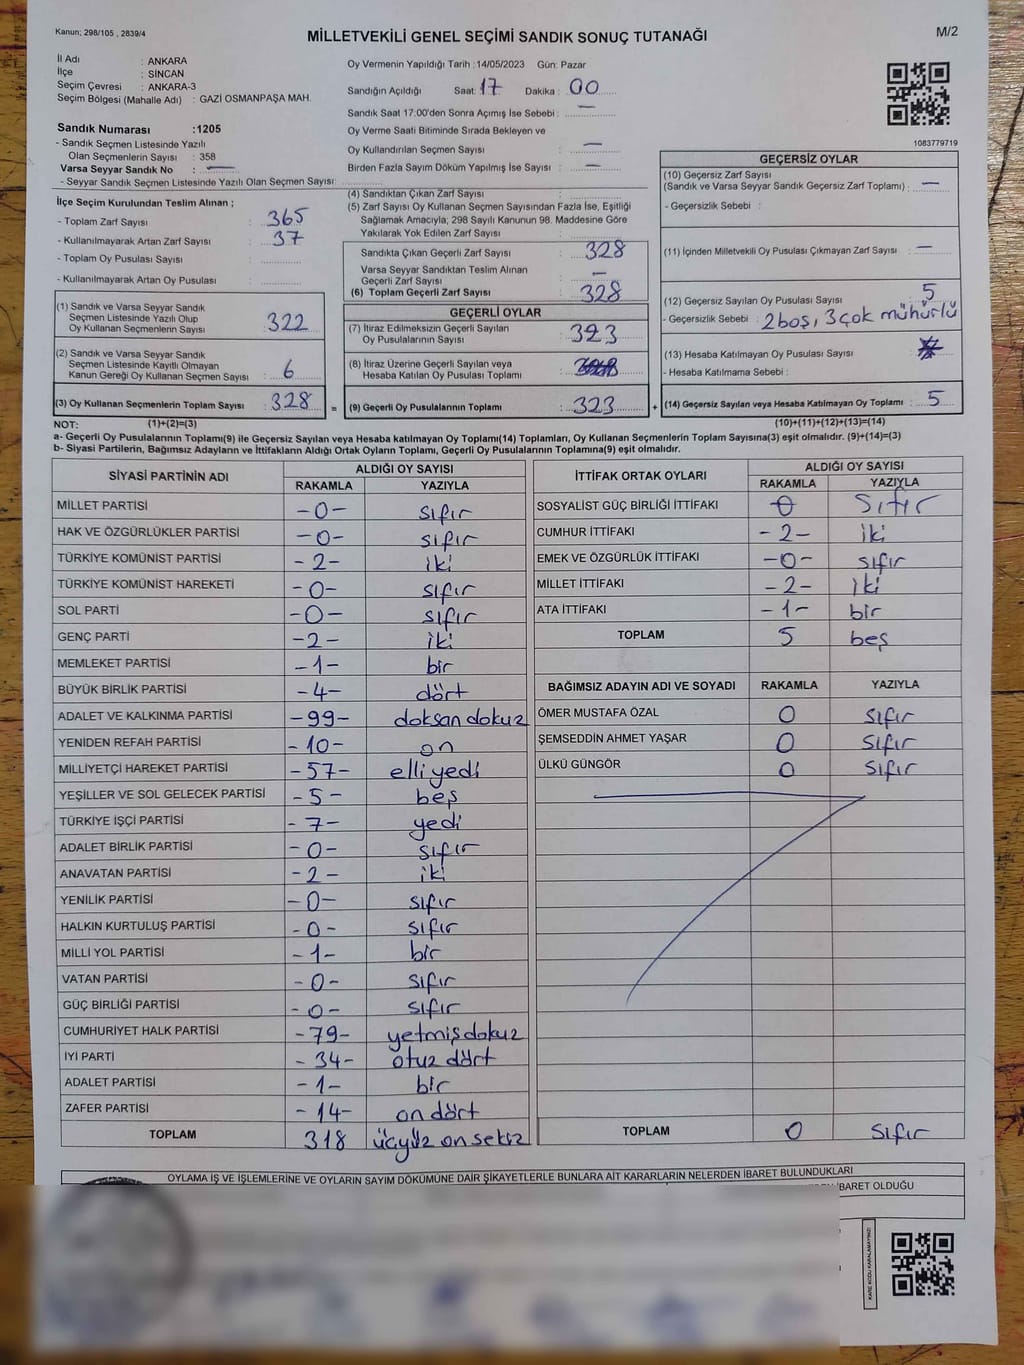 Kanun; 298/105 , 2839/4
MİLLETVEKİLİ GENEL SEÇİMİ SANDIK SONUÇ TUTANAĞI
M/2
İl Adı : ANKARA
İlçe : SİNCAN
Seçim Çevresi : ANKARA-3
Seçim Bölgesi (Mahalle Adı) : GAZİ OSMANPAŞA MAH.
Sandık Numarası :1205
- Sandık Seçmen Listesinde Yazılı
Olan Seçmenlerin Sayısı : 358
Varsa Seyyar Sandık No : —
- Seyyar Sandık Seçmen Listesinde Yazılı Olan Seçmen Sayısı:
Oy Vermenin Yapıldığı Tarih :14/05/2023 Gün: Pazar
Sandığın Açıldığı Saat: 17 Dakika : 00
Sandık Saat 17:00'den Sonra Açımış İse Sebebi : —
Oy Verme Saati Bitiminde Sırada Bekleyen ve
Oy Kullandırılan Seçmen Sayısı : —
Birden Fazla Sayım Döküm Yapılmış İse Sayısı : —
1083779719
İlçe Seçim Kurulundan Teslim Alınan ;
- Toplam Zarf Sayısı : 365
- Kullanılmayarak Artan Zarf Sayısı : 37
- Toplam Oy Pusulası Sayısı :
- Kullanılmayarak Artan Oy Pusulası :
(1) Sandık ve Varsa Seyyar Sandık
Seçmen Listesinde Yazılı Olup
Oy Kullanan Seçmenlerin Sayısı : 322
(2) Sandık ve Varsa Seyyar Sandık
Seçmen Listesinde Kayıtlı Olmayan
Kanun Gereği Oy Kullanan Seçmen Sayısı : 6
(3) Oy Kullanan Seçmenlerin Toplam Sayısı : 328
(4) Sandıktan Çıkan Zarf Sayısı :
(5) Zarf Sayısı Oy Kullanan Seçmen Sayısından Fazla İse, Eşitliği
Sağlamak Amacıyla; 298 Sayılı Kanunun 98. Maddesine Göre
Yakılarak Yok Edilen Zarf Sayısı :
Sandıkta Çıkan Geçerli Zarf Sayısı : 328
Varsa Seyyar Sandıktan Teslim Alınan
Geçerli Zarf Sayısı : —
(6) Toplam Geçerli Zarf Sayısı : 328
GEÇERLİ OYLAR
(7) İtiraz Edilmeksizin Geçerli Sayılan
Oy Pusulalarının Sayısı : 323
(8) İtiraz Üzerine Geçerli Sayılan veya
Hesaba Katılan Oy Pusulası Toplamı :
= (9) Geçerli Oy Pusulalarının Toplamı : 323
GEÇERSİZ OYLAR
(10) Geçersiz Zarf Sayısı
(Sandık ve Varsa Seyyar Sandık Geçersiz Zarf Toplamı) : —
- Geçersizlik Sebebi :
(11) İçinden Milletvekili Oy Pusulası Çıkmayan Zarf Sayısı : —
(12) Geçersiz Sayılan Oy Pusulası Sayısı : 5
- Geçersizlik Sebebi : 2boş, 3çok mühürlü
(13) Hesaba Katılmayan Oy Pusulası Sayısı :
- Hesaba Katılmama Sebebi :
+ (14) Geçersiz Sayılan veya Hesaba Katılmayan Oy Toplamı : 5
NOT: (1)+(2)=(3) (10)+(11)+(12)+(13)=(14)
a- Geçerli Oy Pusulalarının Toplamı(9) ile Geçersiz Sayılan veya Hesaba katılmayan Oy Toplamı(14) Toplamları, Oy Kullanan Seçmenlerin Toplam Sayısına(3) eşit olmalıdır. (9)+(14)=(3)
b- Siyasi Partilerin, Bağımsız Adayların ve İttifakların Aldığı Ortak Oyların Toplamı, Geçerli Oy Pusulalarının Toplamına(9) eşit olmalıdır.
SİYASİ PARTİNİN ADI ALDIĞI OY SAYISI
RAKAMLA YAZIYLA
MİLLET PARTİSİ -0- sıfır
HAK VE ÖZGÜRLÜKLER PARTİSİ -0- sıfır
TÜRKİYE KOMÜNİST PARTİSİ -2- iki
TÜRKİYE KOMÜNİST HAREKETİ -0- sıfır
SOL PARTİ -0- sıfır
GENÇ PARTİ -2- iki
MEMLEKET PARTİSİ -1- bir
BÜYÜK BİRLİK PARTİSİ -4- dört
ADALET VE KALKINMA PARTİSİ -99- doksan dokuz
YENİDEN REFAH PARTİSİ -10- on
MİLLİYETÇİ HAREKET PARTİSİ -57- elli yedi
YEŞİLLER VE SOL GELECEK PARTİSİ -5- beş
TÜRKİYE İŞÇİ PARTİSİ -7- yedi
ADALET BİRLİK PARTİSİ -0- sıfır
ANAVATAN PARTİSİ -2- iki
YENİLİK PARTİSİ -0- sıfır
HALKIN KURTULUŞ PARTİSİ -0- sıfır
MİLLİ YOL PARTİSİ -1- bir
VATAN PARTİSİ -0- sıfır
GÜÇ BİRLİĞİ PARTİSİ -0- sıfır
CUMHURİYET HALK PARTİSİ -79- yetmiş dokuz
İYİ PARTİ -34- otuz dört
ADALET PARTİSİ -1- bir
ZAFER PARTİSİ -14- on dört
TOPLAM 318 üçyüz on sekiz
İTTİFAK ORTAK OYLARI ALDIĞI OY SAYISI
RAKAMLA YAZIYLA
SOSYALİST GÜÇ BİRLİĞİ İTTİFAKI 0 Sıfır
CUMHUR İTTİFAKI -2- iki
EMEK VE ÖZGÜRLÜK İTTİFAKI -0- sıfır
MİLLET İTTİFAKI -2- iki
ATA İTTİFAKI -1- bir
TOPLAM 5 beş
BAĞIMSIZ ADAYIN ADI VE SOYADI RAKAMLA YAZIYLA
ÖMER MUSTAFA ÖZAL 0 sıfır
ŞEMSEDDİN AHMET YAŞAR 0 sıfır
ÜLKÜ GÜNGÖR 0 sıfır
TOPLAM 0 sıfır
OYLAMA İŞ VE İŞLEMLERİNE VE OYLARIN SAYIM DÖKÜMÜNE DAİR ŞİKAYETLERLE BUNLARA AİT KARARLARIN NELERDEN İBARET BULUNDUKLARI
İBARET OLDUĞU
KARE KODU KARALAMAYINIZ!